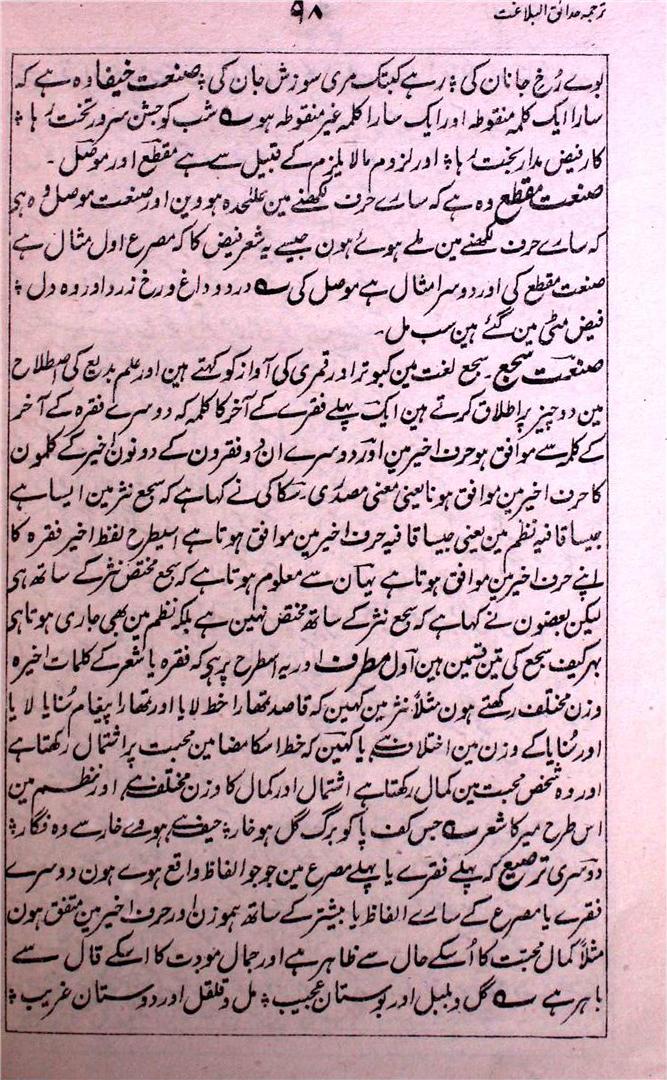 ترجمہ حدائق البلاغت
۹۸
بوے رُخ جاناں کی ؞ رہے کبتک مری سوزش جان کی ؞ صنعت خیفا وہ ہے کہ
سارا ایک کلمہ منقوطہ اور ایک سارا کلمہ غیر منقوطہ ہو ؎ شب کو جشن سرور تخت رہا ؞
کار فیض مدار بخت رہا ؞ اور لزوم مالا یلزم کے قبیل سے ہے مقطع اور موصل ۔
صنعت مقطع وہ ہے کہ سارے حرف لکھنے مین علٰحدہ ہووین اور صنعت موصل وہ ہی
کہ سارے حرف لکھنے مین ملے ہوئے ہون جیسے یہ شعر فیض کا کہ مصرع اول مثال ہے
صنعت مقطع کی اور دوسرا مثال ہے موصل کی ؎ درد و داغ و رخ زرد اور وہ دل ؞
فیض مٹی مین گئے ہین سب مل ۔
صنعت سجع ۔ سجع لغت مین کبوتر اور قمری کی آواز کو کہتے ہین اور علم بدیع کی اصطلاح
مین دو چیز پر اطلاق کرتے ہین ایک پہلے فقرے کے آخر کا کلمہ کہ دوسرے فقرہ کے آخر
کے کلمہ سے موافق ہو حرف اخیر مین اور دوسرے ان دو فقرون کے دونون اخیر کے کلمون
کا حرف اخیر مین موافق ہونا یعنی معنی مصدری ۔ سکاکی نے کہا ہے کہ سجع نثر مین ایسا ہے
جیسا قافیہ نظم مین یعنی جیسا قافیہ حرف اخیر مین موافق ہوتا ہے اسیطرح لفظ اخیر فقرہ کا
اپنے حرف اخیر مین موافق ہوتا ہے یہان سے معلوم ہوتا ہے کہ سجع مختص نثر کے ساتھ ہی
لیکن بعضون نے کہا ہے کہ سجع نثر کے ساتھ مختص نہین ہے بلکہ نظم مین بھی جاری ہوتا ہی
بہر کیف سجع کی تین قسمین ہین اول مطرف اور یہ اسطرح پر ہی کہ فقرہ یا شعر کے کلمات اخیرہ
وزن مختلف رکھتے ہون مثلاً نثر مین کہین کہ قاصد تمھارا خط لایا اور تمھارا پیغام سُنایا لایا
اور سُنایا کے وزن مین اختلاف ہے یا کہین کہ خط اسکا مضامین محبت پر اشتمال رکھتا ہے
اور وہ شخص محبت مین کمال رکھتا ہے اشتمال اور کمال کا وزن مختلف ہے اور نظم مین
اس طرح میر کا شعر ؎ جس کف پا کو برگ گل ہو خار ؞ حیف ہے ہووے خار سے وہ فگار ؞
دوسری ترصیع کہ پہلے فقرے یا پہلے مصرع مین جو جو الفاظ واقع ہوے ہون دوسرے
فقرے یا مصرع کے سارے الفاظ یا بیشتر کے ساتھ ہموزن اور حرف اخیر مین متفق ہون
مثلاً کمال محبت کا اُسکے حال سے ظاہر ہے اور جمال مودت کا اسکے قال سے
باہر ہے ؎ گل و بلبل اور بوستان عجیب ؞ مل و قلقل اور دوستان غریب ؞